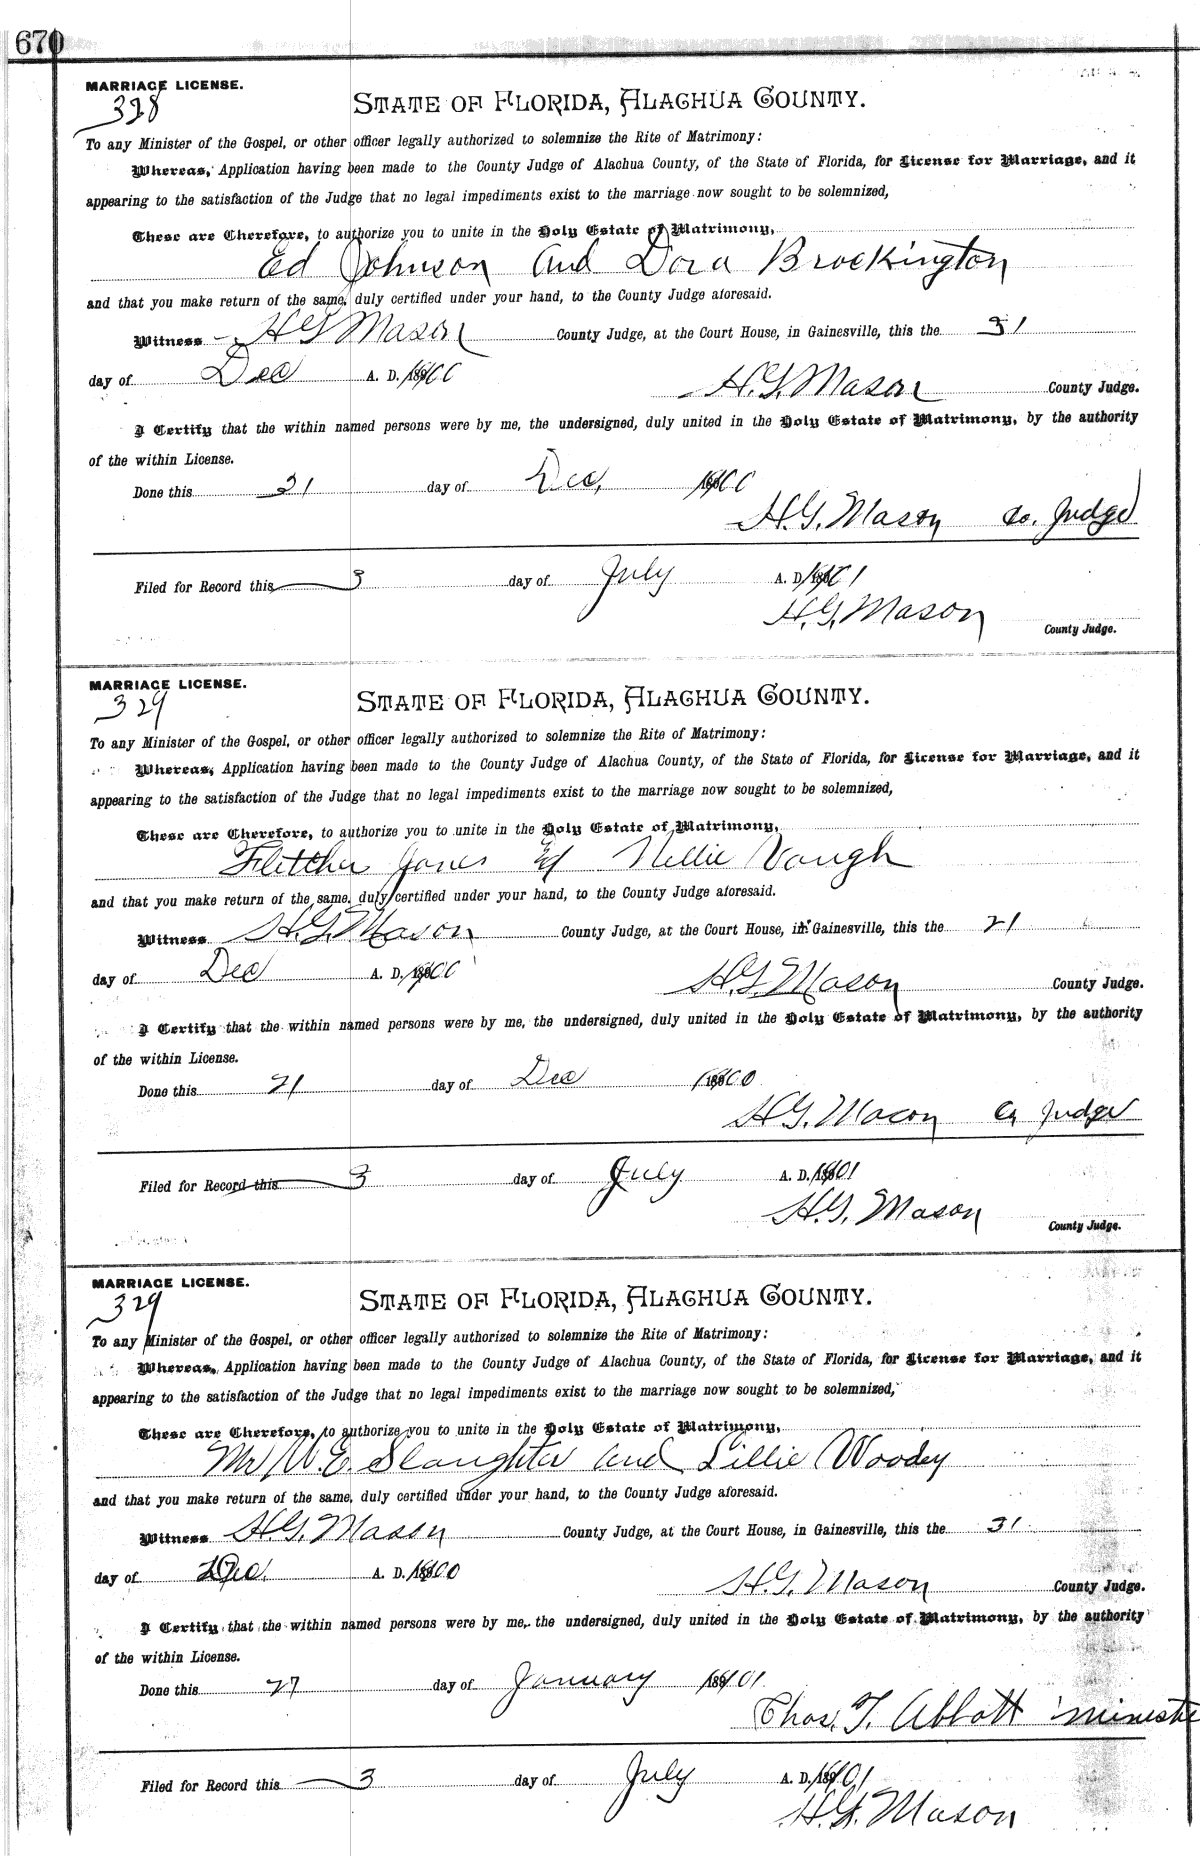 670
MARRIAGE LICENSE.
328
STATE OF FLORIDA, ALACHUA COUNTY.
To any Minister of the Gospel, or other officer legally authorized to solemnize the Rite of Matrimony:
Whereas, Application having been made to the County Judge of Alachua County, of the State of Florida, for License for Marriage, and it
appearing to the satisfaction of the Judge that no legal impediments exist to the marriage now sought to be solemnized,
These are Cherefore, to authorize you to unite in the Holy Estate of Matrimony,
Ed Johnson and Dora Brockington
and that you make return of the same, duly certified under your hand, to the County Judge aforesaid.
Witness H G Mason County Judge, at the Court House, in Gainesville, this the 31
day of Dec A. D. 1900
H. G. Mason County Judge.
I Certify that the within named persons were by me, the undersigned, duly united in the Holy Estate of Matrimony, by the authority
of the within License.
Done this 31 day of Dec, 1900
H. G. Mason Co. Judge
Filed for Record this 3 day of July A. D. 1901
H. G. Mason
County Judge.
MARRIAGE LICENSE.
329
STATE OF FLORIDA, ALACHUA COUNTY.
To any Minister of the Gospel, or other officer legally authorized to solemnize the Rite of Matrimony:
Whereas, Application having been made to the County Judge of Alachua County, of the State of Florida, for License for Marriage, and it
appearing to the satisfaction of the Judge that no legal impediments exist to the marriage now sought to be solemnized,
These are Cherefore, to authorize you to unite in the Holy Estate of Matrimony,
Fletcher Jones & Nellie Vaugh
and that you make return of the same, duly certified under your hand, to the County Judge aforesaid.
Witness H. G. Mason County Judge, at the Court House, in Gainesville, this the 21
day of Dec A. D. 1900
H. G. Mason County Judge.
I Certify that the within named persons were by me, the undersigned, duly united in the Holy Estate of Matrimony, by the authority
of the within License.
Done this 21 day of Dec 1900
H G. Mason Co Judge
Filed for Record this 3 day of July A. D. 1901
H. G. Mason
County Judge.
MARRIAGE LICENSE.
329
STATE OF FLORIDA, ALACHUA COUNTY.
To any Minister of the Gospel, or other officer legally authorized to solemnize the Rite of Matrimony:
Whereas, Application having been made to the County Judge of Alachua County, of the State of Florida, for License for Marriage, and it
appearing to the satisfaction of the Judge that no legal impediments exist to the marriage now sought to be solemnized,
These are Cherefore, to authorize you to unite in the Holy Estate of Matrimony,
Mr W. E. Slaughter and Lillie Woodey
and that you make return of the same, duly certified under your hand, to the County Judge aforesaid.
Witness H. G. Mason County Judge, at the Court House, in Gainesville, this the 31
day of Dec. A. D. 1900
H. G. Mason County Judge.
I Certify that the within named persons were by me, the undersigned, duly united in the Holy Estate of Matrimony, by the authority
of the within License.
Done this 27 day of January 1901
Chas. T. Abbott Ministe
Filed for Record this 3 day of July A. D. 1901
H. G. Mason